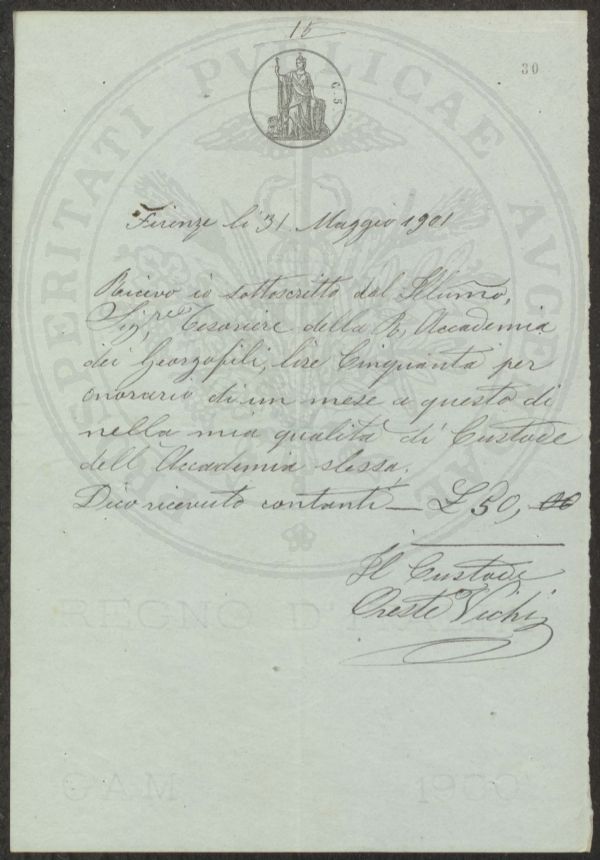 15
30
C. 5
Firenze li 31 Maggio 1901
Ricevo io sottoscritto dal Illumo,
Sigre Tesoriere della R, Accademia
dei Georgofili, lire Cinquanta per
onorario di un mese a questo di
nella mia qualità di Custode
dell Accademia stessa.
Dico ricevuto contanti — £ 50, 00
Il Custode
Oreste Vichi
PROSPERITATI PUBLICAE AUGENDAE
REGNO D'
G A M 1900